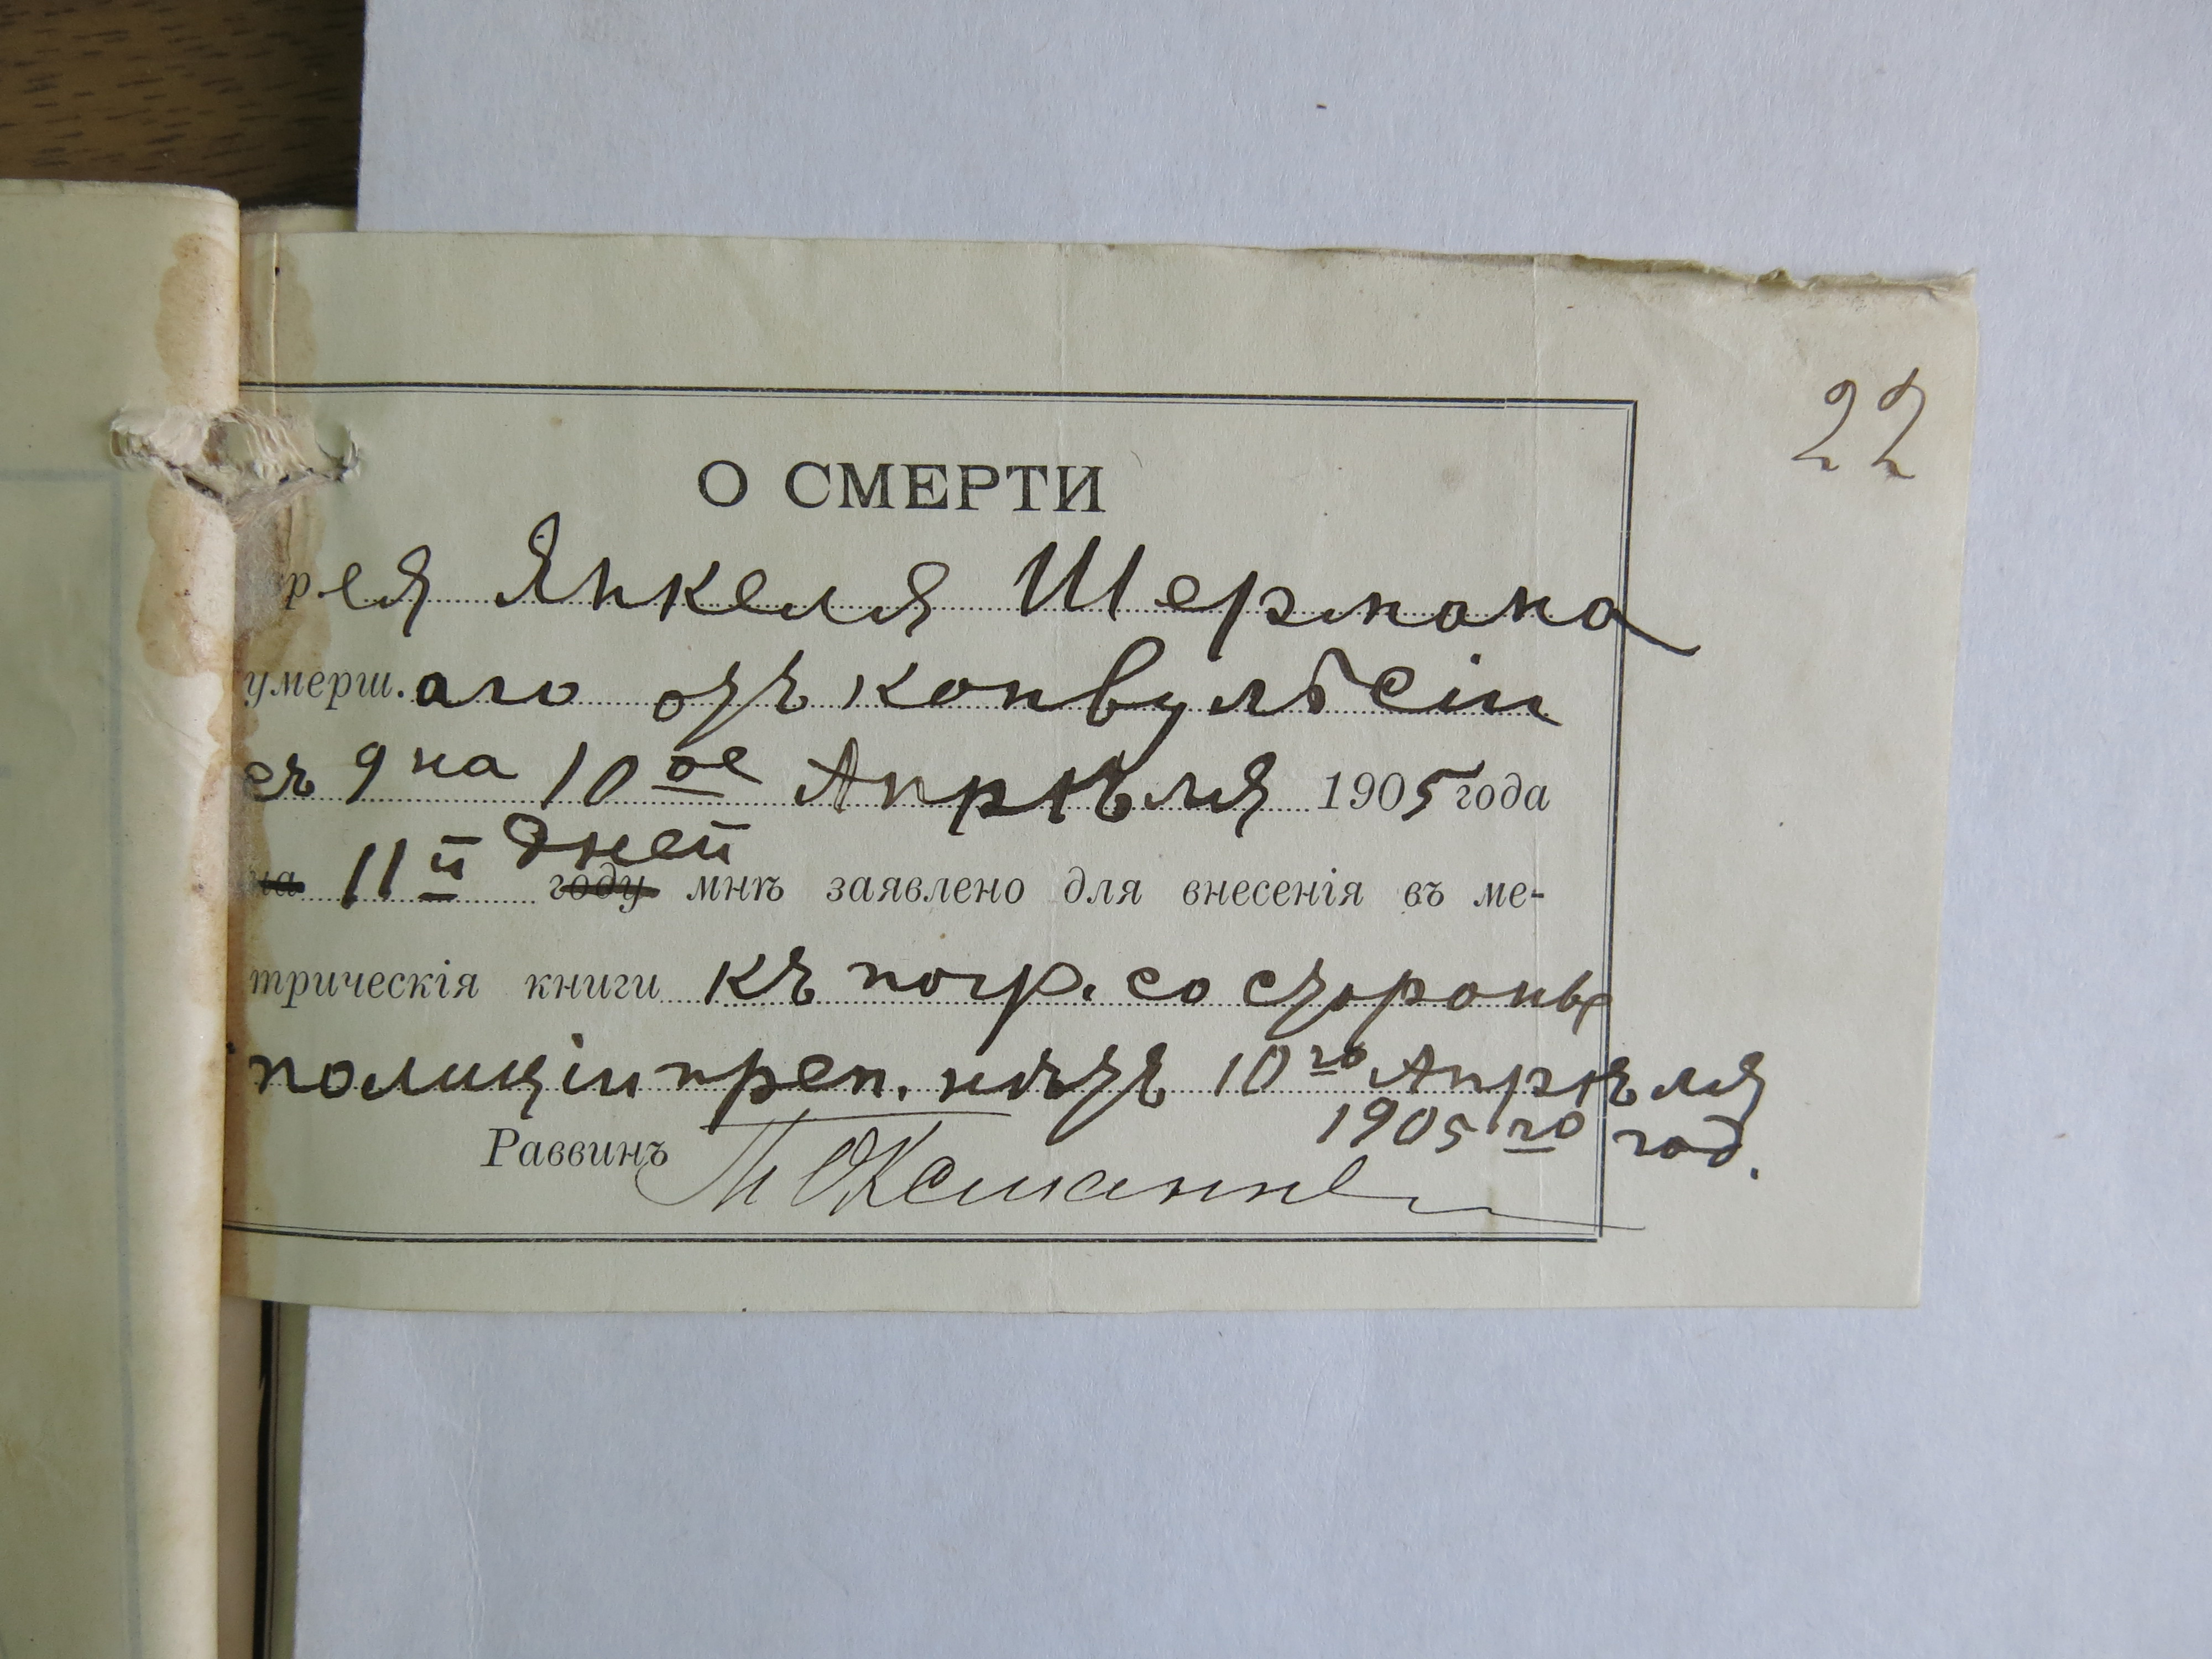 22
О СМЕРТИ
рея Янкеля Шермана
умерш.аго отъ конвульсіи
съ 9 на 10ое Апрѣля 1905 года
дней
на 11й году мнѣ заявлено для внесенія въ ме-
трическія книги къ погр. со стороны
полиціи преп. нѣтъ 10го Апрѣля
1905 го год.
Раввинъ